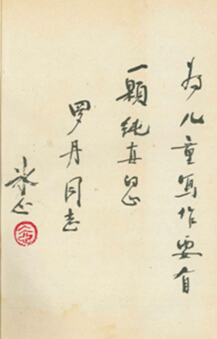 为儿童写作要有
一颗纯真的心
罗丹同志
冰心